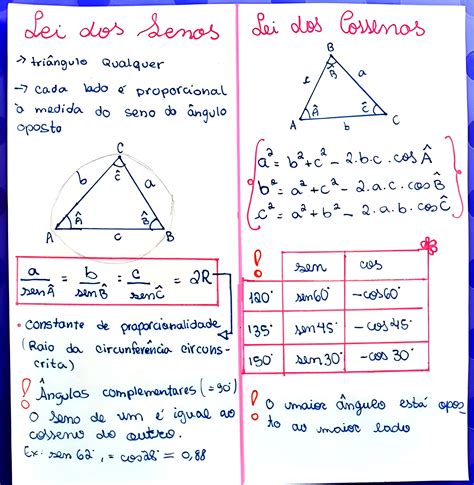 Lei dos Senos
→ triângulo qualquer
→ cada lado é proporcional
à medida do seno do ângulo
oposto
C
Ĉ
b
a
Â
B̂
A
c
B
a/senÂ = b/senB̂ = c/senĈ = 2R
• constante de proporcionalidade
(Raio da circunferência circuns-
crita)
! Ângulos complementares (=90°)
O seno de um é igual ao
cosseno do outro.
Ex: sen 62°, = cos28° = 0,88
Lei dos Cossenos
B
B̂
c
a
Â
Ĉ
A
b
C
a² = b² + c² - 2.b.c.cosÂ
b² = a² + c² - 2.a.c.cosB̂
c² = a² + b² - 2.a.b.cosĈ
! sen cos
120° sen60° -cos60°
135° sen45° -cos45°
150° sen30° -cos30°
! O maior ângulo está opos
to ao maior lado